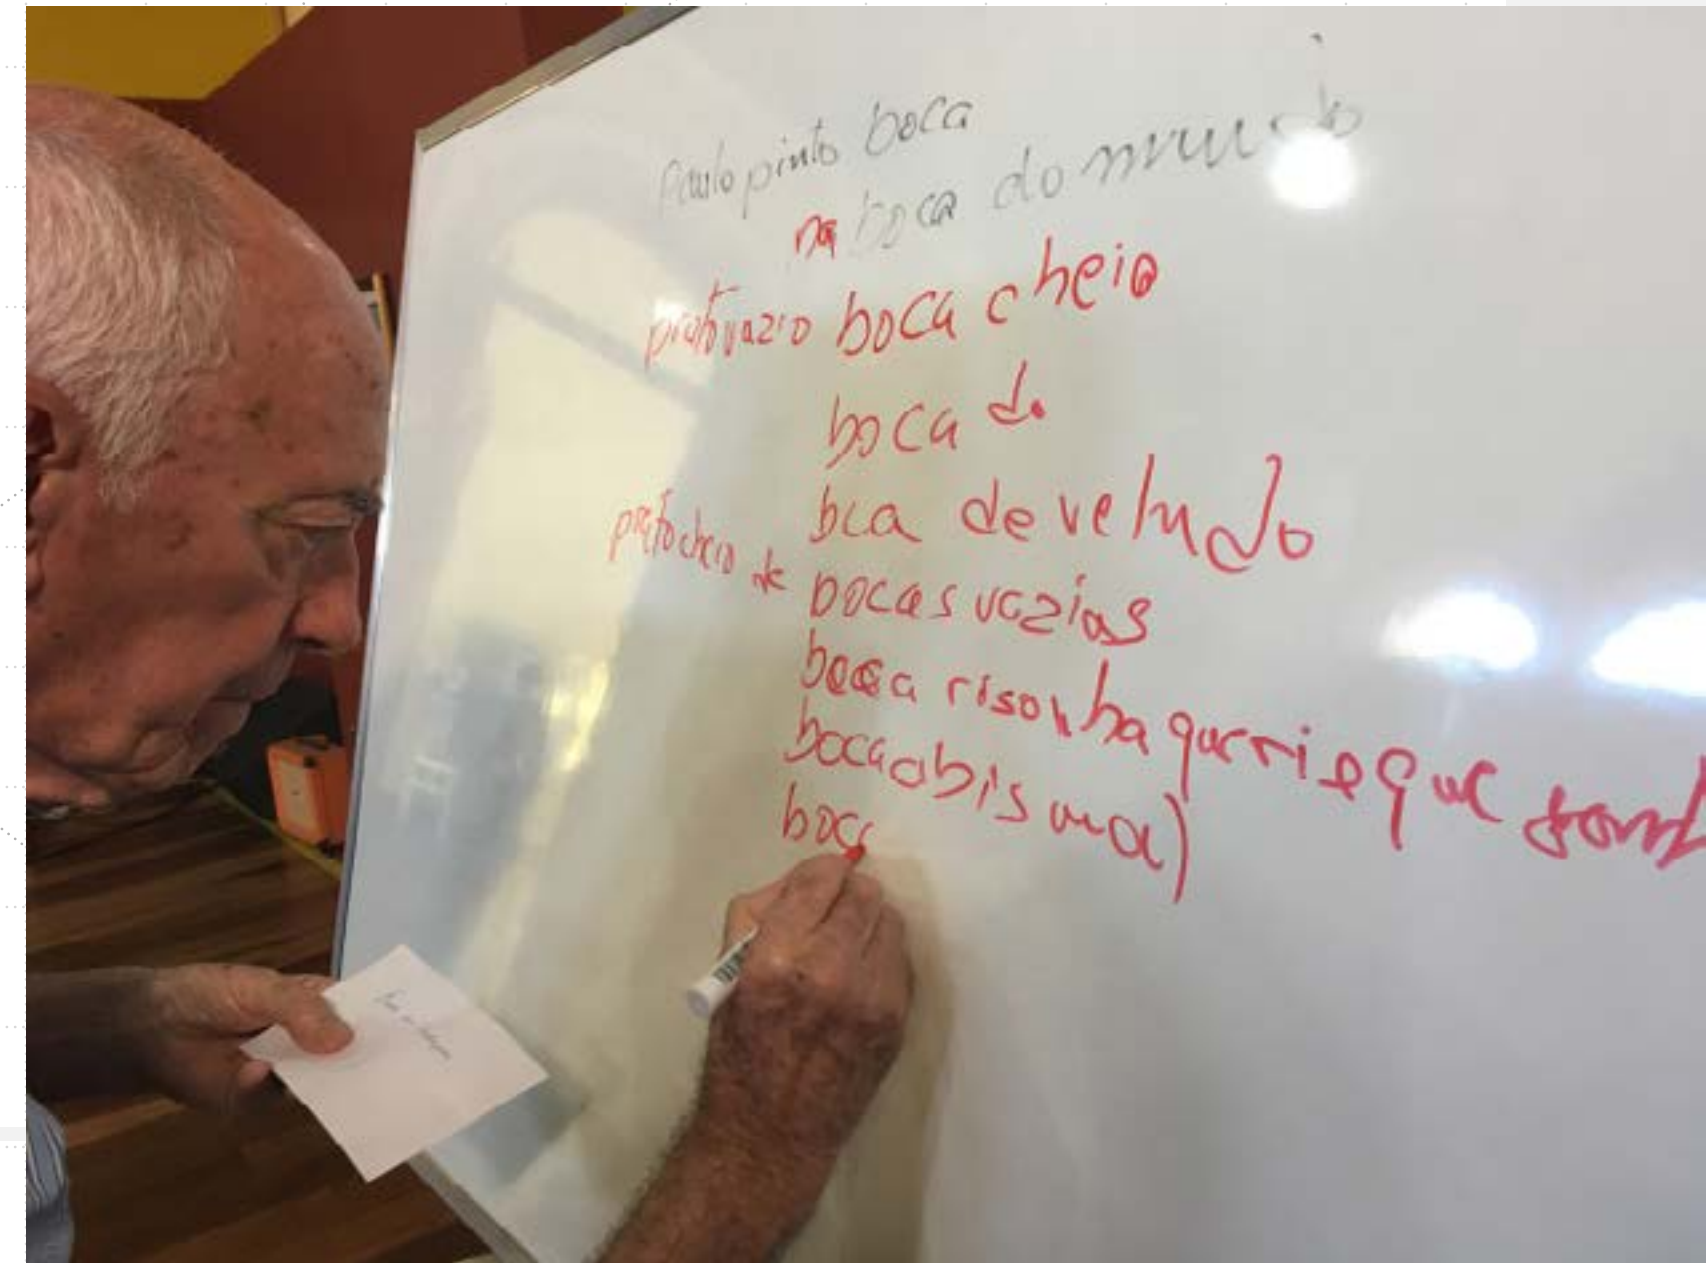 Paulo pinto boca
na boca do mundo
prato vazio boca cheia
boca do
bca de veludo
prato cheio de bocas vazias
boca risonha que rri e que
boca abisma)
boca